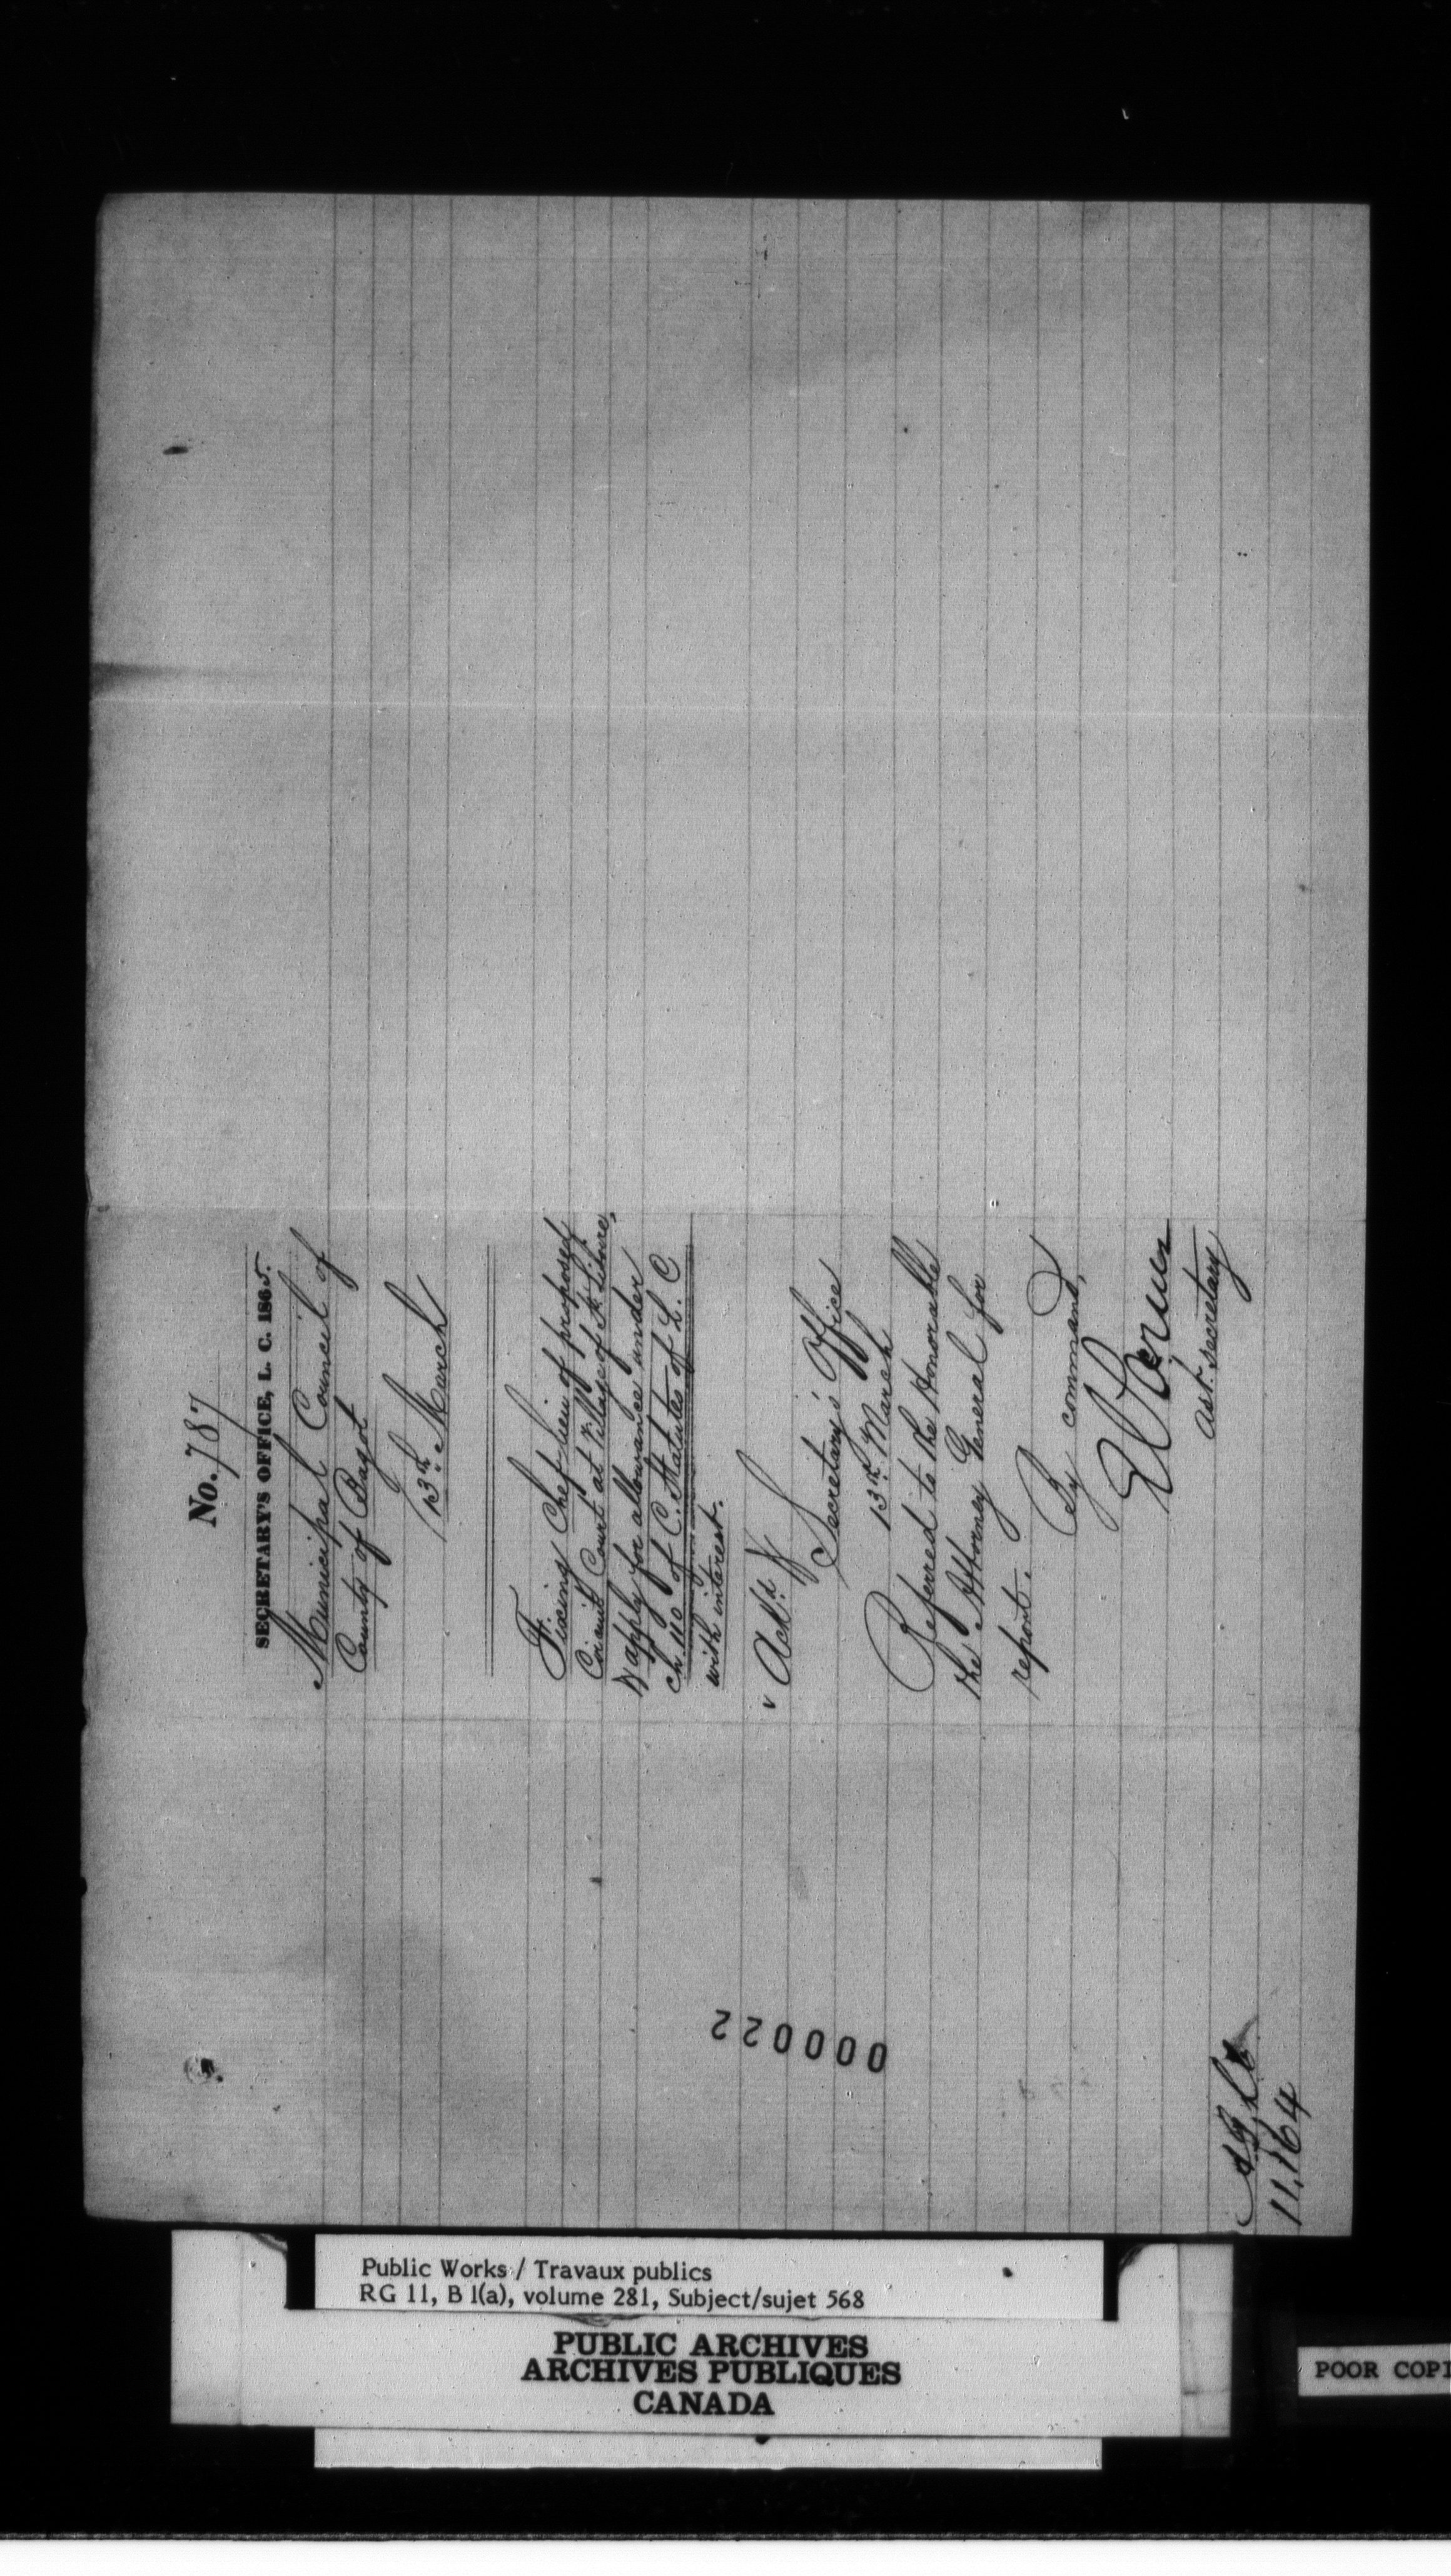 No. 787
SECRETARY'S OFFICE, L. C. 1865.
Municipal Council of
County of Bagot
13th March
Fixing Chef lieu of proposed
Circuit Court at Village of St. Liboire,
& apply for allowance under
ch. 110 of C. Statutes of L. C
with interest.
Ackd
Secretary's Office
13th March
Referred to the Honorable
the Attorney General for
report.
By command,
Asst. Secretary
000022
11,164
Public Works / Travaux publics
RG 11, B 1(a), volume 281, Subject/sujet 568
PUBLIC ARCHIVES
ARCHIVES PUBLIQUES
CANADA
POOR COPI